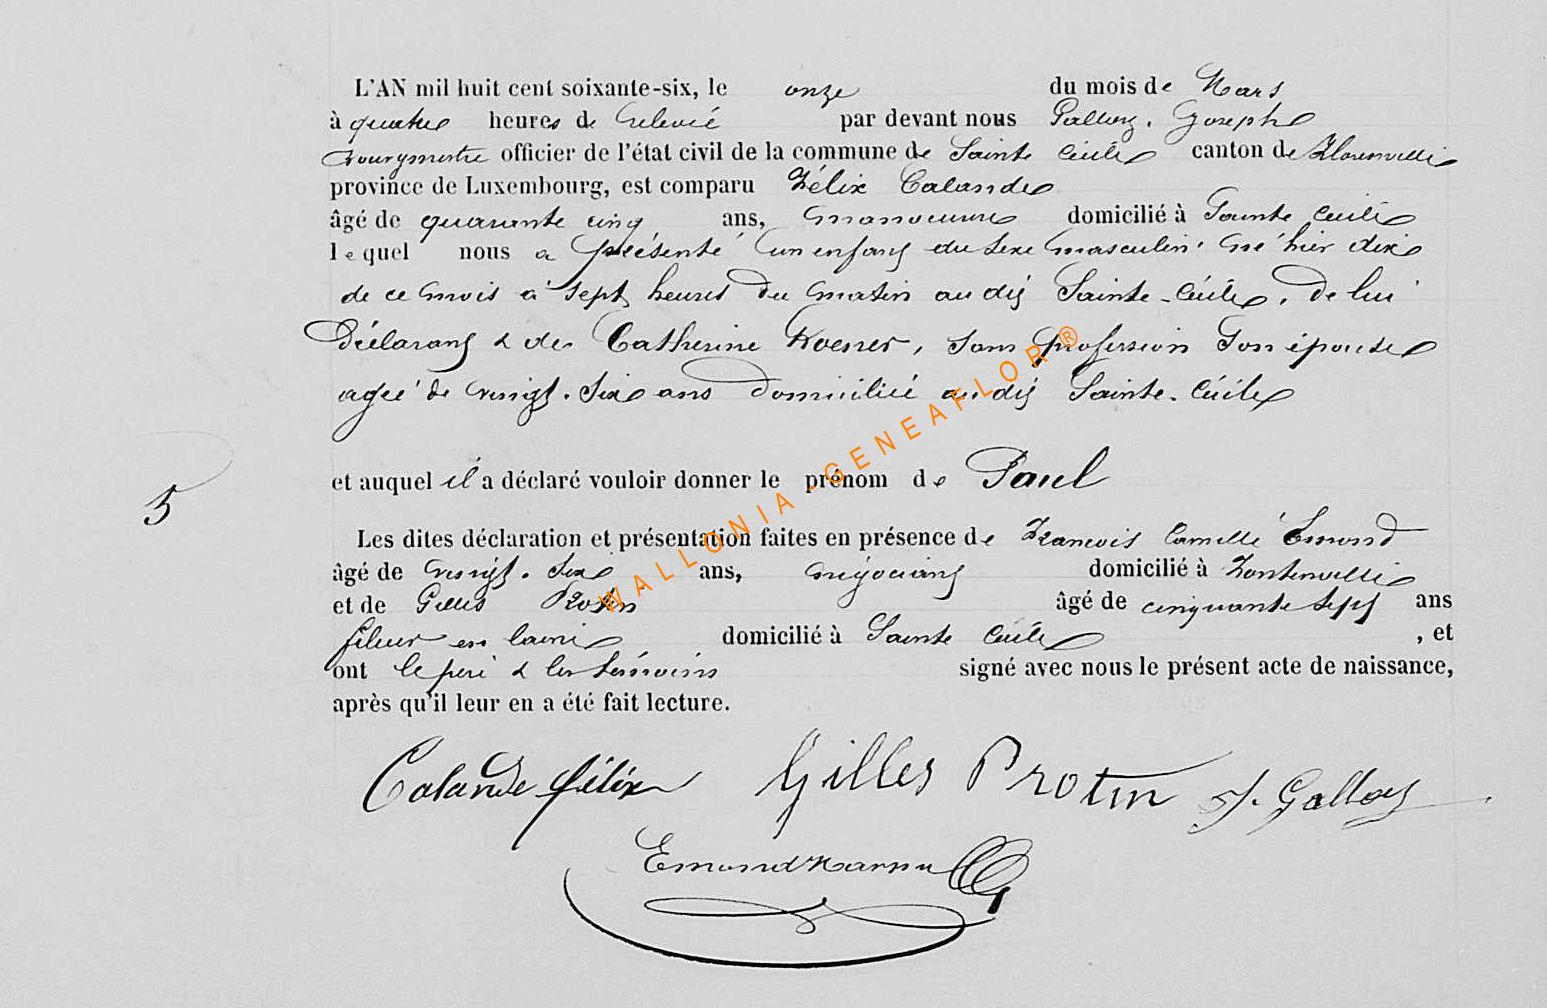 L'AN mil huit cent soixante-six, le onze du mois de Mars
à quatre heures de relevée par devant nous Galloy, Joseph
Bourgmestre officier de l'état civil de la commune de Sainte Cécile canton de Florenville
province de Luxembourg, est comparu Félix Calande
âgé de quarante cinq ans, manoeuvre domicilié à Sainte Cécile
lequel nous a présenté un enfant du sexe masculin né hier dix
de ce mois à sept heures du matin au dit Sainte-Cécile, de lui
Déclarant & de Catherine, sans profession son épouse
agée de vingt-six ans domiciliée au dit Sainte-Cécile
et auquel il a déclaré vouloir donner le prénom de Paul
5
Les dites déclaration et présentation faites en présence de François Camille Emond
âgé de vingt-six ans, négociant domicilié à Fontenoille
et de Gilles Protin âgé de cinquante sept ans
fileur en laine domicilié à Sainte Cécile, et
ont le père & les témoins signé avec nous le présent acte de naissance,
après qu'il leur en a été fait lecture.
Calande félix Gilles Protin J. Galloy
Emond
WALLONIA - GENEAFLOR®